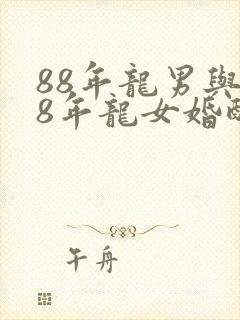 88年龍男與
8年龍女婚配
午舟